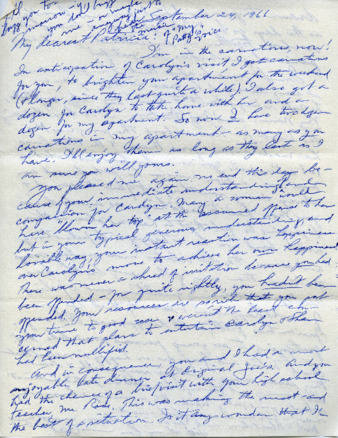 I'll
bugg you to
September 24, 1966
My dearest Patricia
I'm in the carnations, now!
In anticipation of Carolyn's visit I got carnations
for you, to brighten your apartment for the weekend
(+ longer, since they last quite a while). I also got a
dozen for Carolyn to take home with her and a
dozen for my apartment. So now I have two dozen
carnations in my apartment - as many as you
have. I'll enjoy them as long as they last as I
am sure you will yours.
You pleased me again no end this day be-
cause of your immediate understanding and
compassion for Carolyn. Many a woman would
have "blown her top" at the
but in your typical generous, understanding and
loveable way, your instant reaction was happiness
over Carolyn's move to achieve her own happiness.
There was never a shred of irritation because you had
been offended - for quite rightly, you hadn't been
offended. Your resources are so rich that you put
your time to good use + weren't the least con-
cerned that plans to entertain Carolyn +
had been nullified.
And in consequence you and I had a most
enjoyable late dinner at Original Joe's. And you
had the chance of a first visit with your high school
teacher, Mr. This was making the most and
the best of a situation. Is it any wonder that I'm